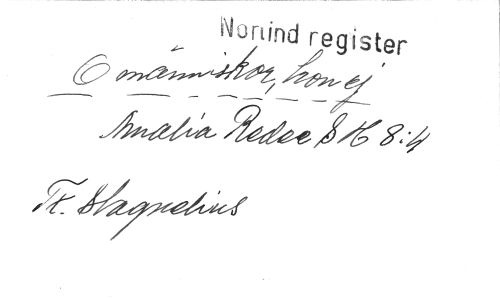 Nonind register
O människor, hon ej
Amalia Redec S H 8:4
Tr. Stagnelius